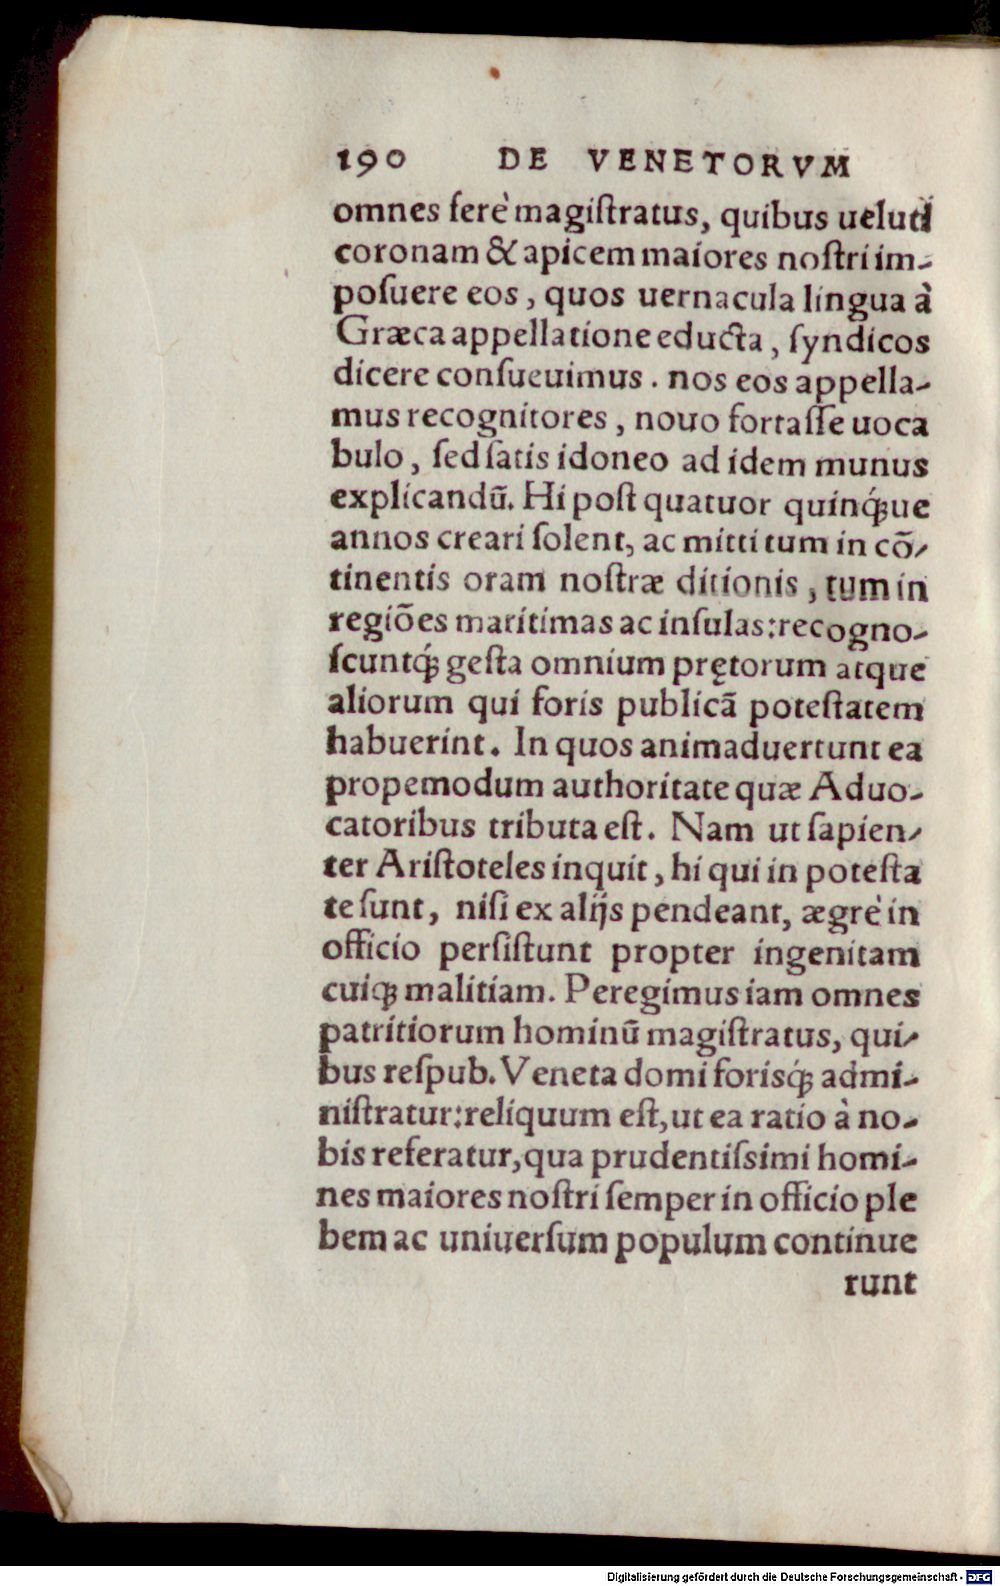 190 DE VENETORVM
omnes ferè magiſtratus, quibus ueluti
coronam & apicem maiores noſtri im-
poſuere eos, quos uernacula lingua à
Græca appellatione educta, ſyndicos
dicere conſueuimus. nos eos appella-
mus recognitores, nouo fortaſſe uoca
bulo, ſed ſatis idoneo ad idem munus
explicandũ. Hi poſt quatuor quinq́ue
annos creari ſolent, ac mitti tum in cõ-
tinentis oram noſtræ ditionis, tum in
regiões maritimas ac inſulas: recogno-
ſcuntq́; geſta omnium prętorum atque
aliorum qui foris publicã poteſtatem
habuerint. In quos animaduertunt ea
propemodum authoritate quæ Aduo-
catoribus tributa eſt. Nam ut ſapien-
ter Ariſtoteles inquit, hi qui in poteſta
te ſunt, niſi ex alijs pendeant, ægrè in
officio perſiſtunt propter ingenitam
cuiq; malitiam. Peregimus iam omnes
patritiorum hominũ magiſtratus, qui-
bus reſpub. Veneta domi forisq́; admi-
niſtratur: reliquum eſt, ut ea ratio à no-
bis referatur, qua prudentiſsimi homi-
nes maiores noſtri ſemper in officio ple
bem ac uniuerſum populum continue
runt
Digitalisierung gefördert durch die Deutsche Forschungsgemeinschaft - DFG